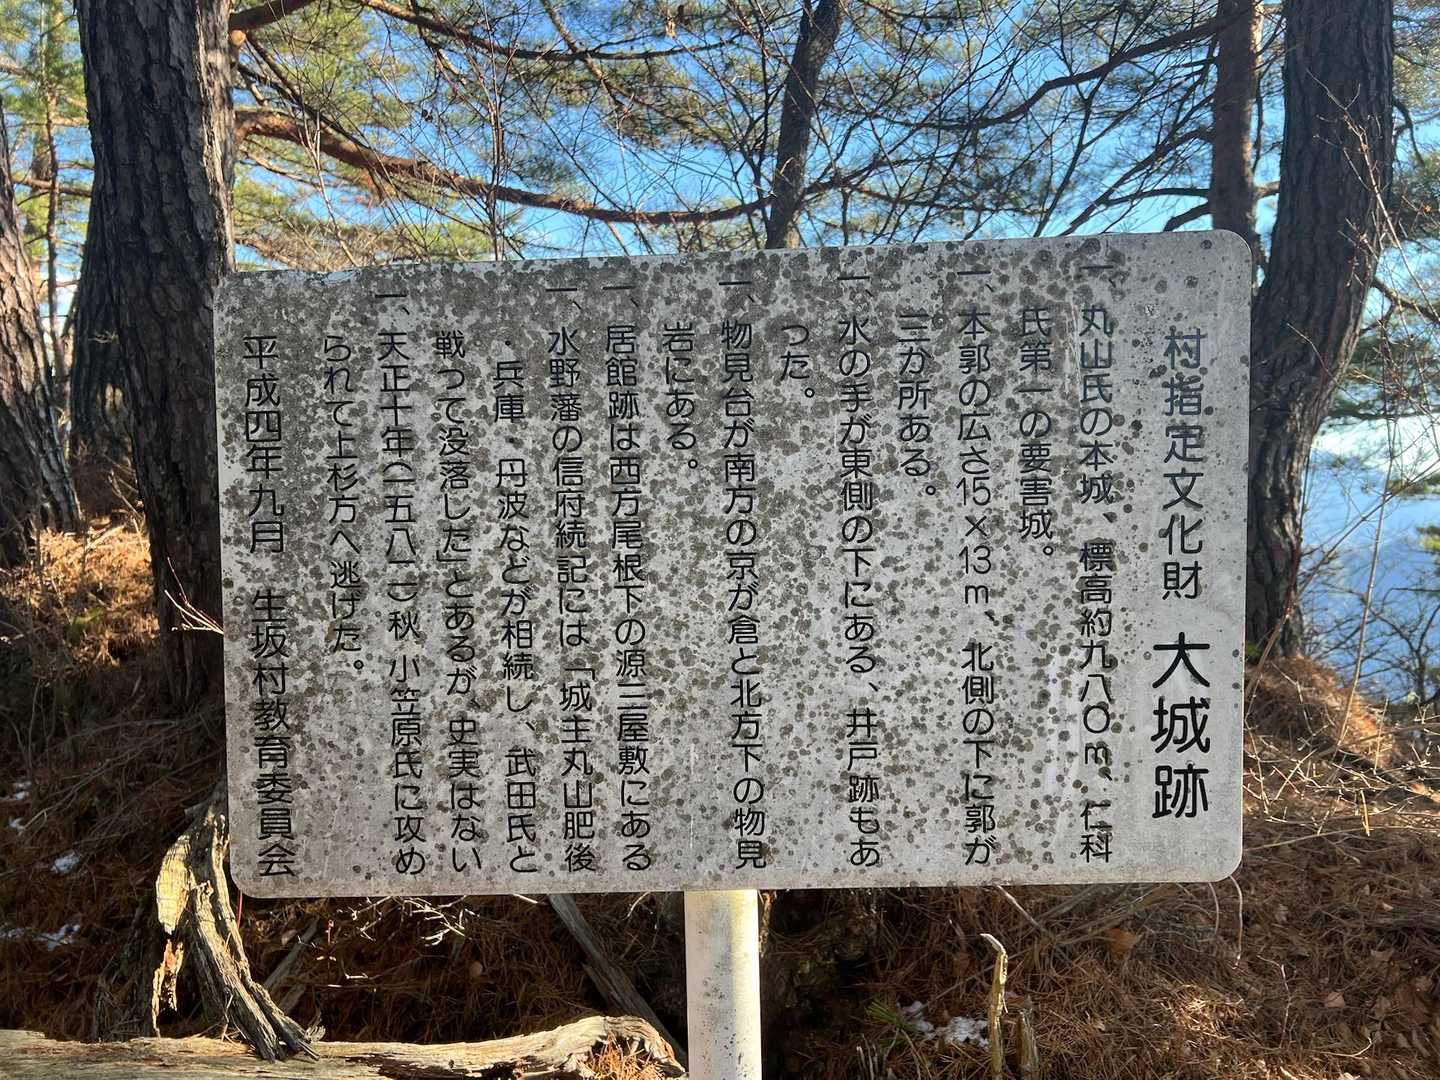 村指定文化財 大城跡
一、丸山氏の本城、標高約九八〇m、仁科
氏第一の要害城。
一、本郭の広さ15×13m、北側の下に郭が
三か所ある。
一、水の手が東側の下にある、井戸跡もあ
った。
一、物見台が南方の京が倉と北方下の物見
岩にある。
一、居館跡は西方尾根下の源三屋敷にある
一、水野藩の信府続記には「城主丸山肥後
・兵庫・丹波などが相続し、武田氏と
戦って没落した」とあるが、史実はない
一、天正十年(一五八二)秋 小笠原氏に攻め
られて上杉方へ逃げた。
平成四年九月 生坂村教育委員会